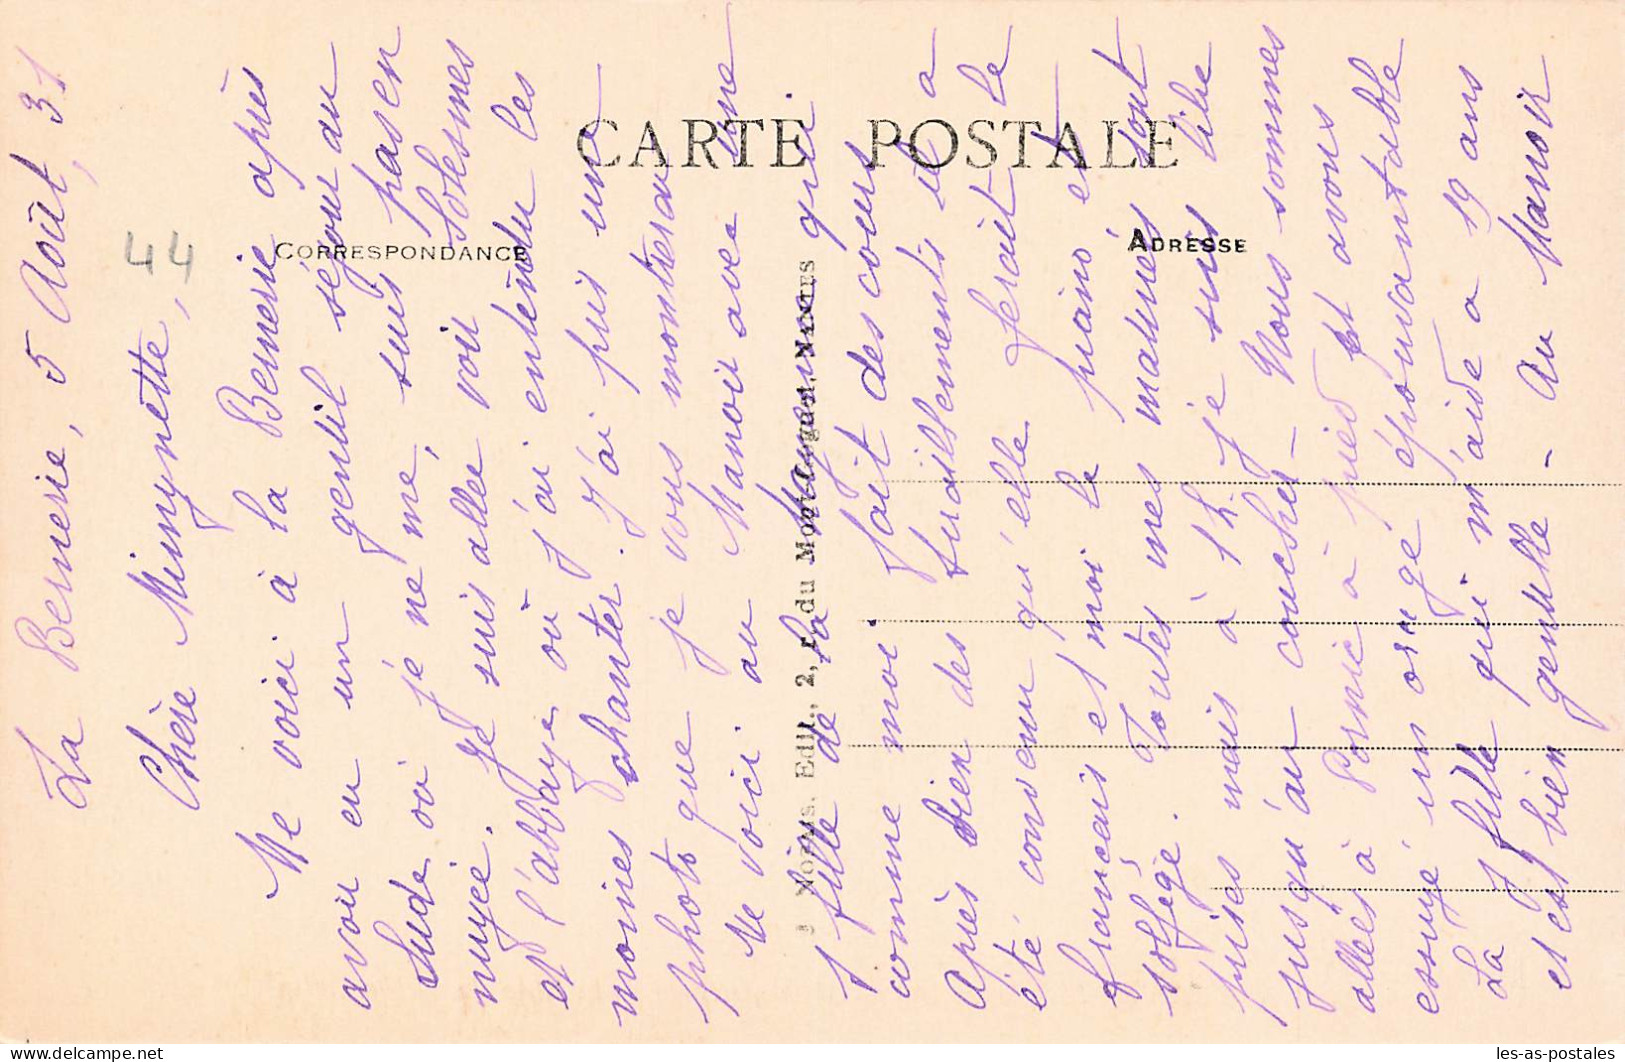 La Bernerie, 5 Août, 31
Chère Mimynette,
Me voici à la Bernerie après
avoir eu un gentil séjour du
Lude où je ne me suis pas en
nuyée. Je suis allée voir Solesmes
et l'abbaye où j'ai entendu les
moines chanter. J'ai pris une
photo que je vous montrerai
Me voici au Manoir avec une
J. fille de la qui
comme moi fait des cours
Après bien des tiraillements il a
été convenu qu'elle ferait le
français et moi le piano et
solfège. Toutes mes matinées sont
prises mais à 1h je suis libre
jusqu'au coucher - Nous sommes
allées à Pornic à pied et avons
essuyé un orage épouvantable
La J fille qui m'aide a 19 ans
et est bien gentille - Au Manoir
44
CARTE POSTALE
CORRESPONDANCE
ADRESSE
Edit., 2, r. du Nantes
les-as-postales